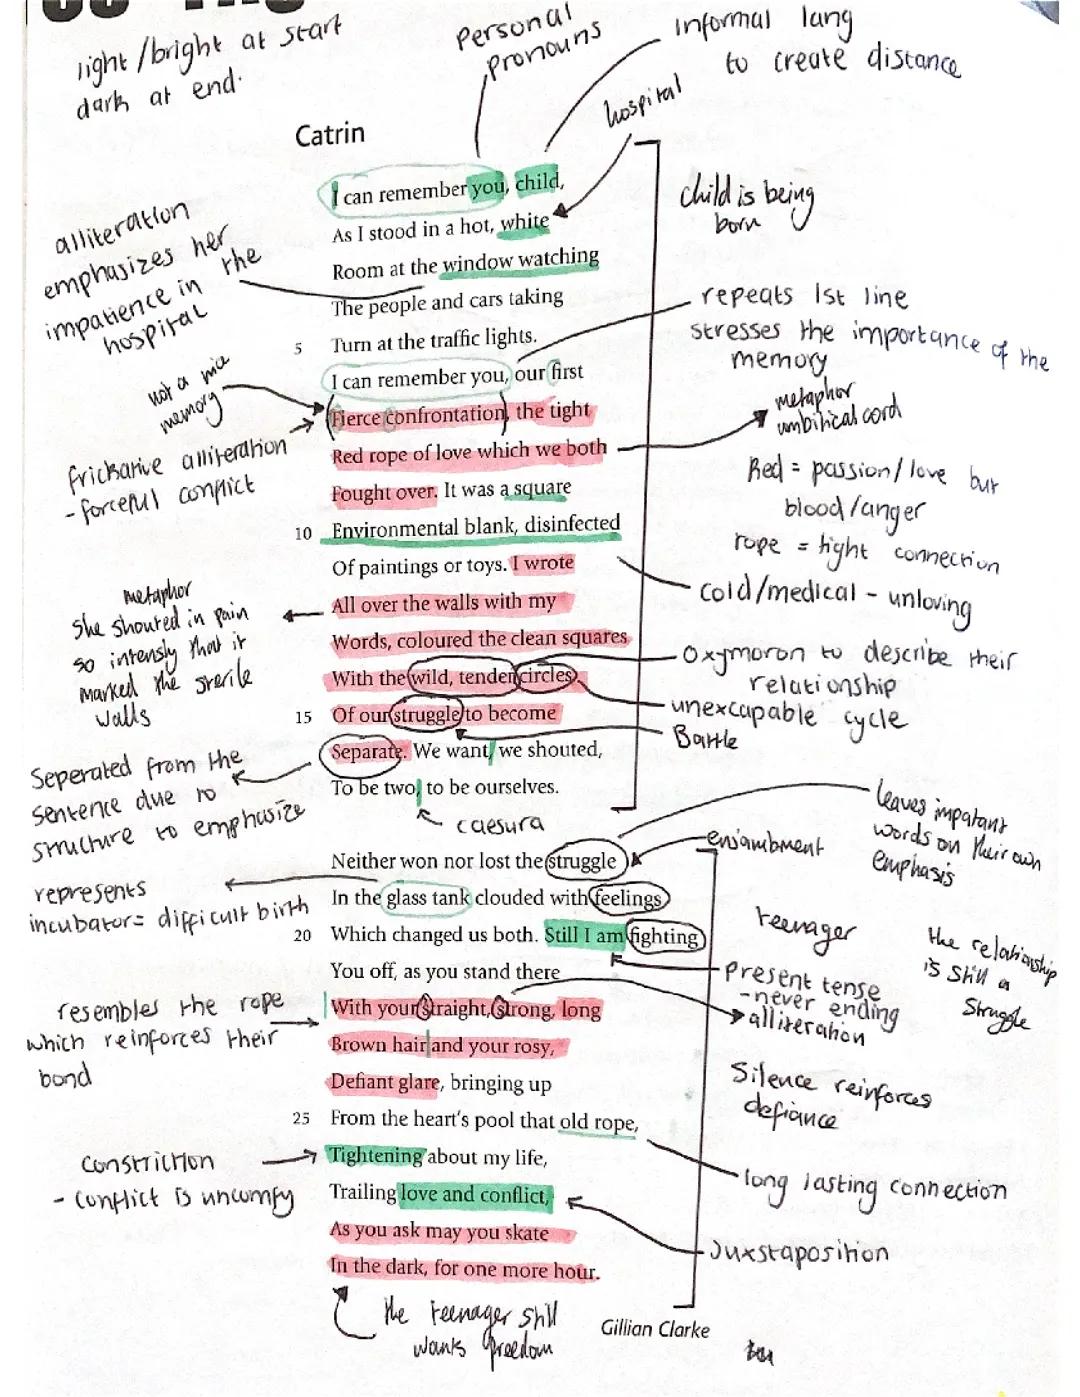 light/bright at start
dark at end.
personal
pronouns
informal lang
to create distance
hospital
Catrin
I can remember you, child,
As I stood in a hot, white
Room at the window watching
The people and cars taking
5 Turn at the traffic lights.
I can remember you, our first
Fierce confrontation, the tight
Red rope of love which we both
Fought over. It was a square
10 Environmental blank, disinfected
Of paintings or toys. I wrote
All over the walls with my
Words, coloured the clean squares
With the wild, tender circles
15 Of our struggle to become
Separate. We want, we shouted,
To be two, to be ourselves.
Neither won nor lost the struggle
In the glass tank clouded with feelings
20 Which changed us both. Still I am fighting
You off, as you stand there
With your straight, strong, long
Brown hair and your rosy,
Defiant glare, bringing up
25 From the heart's pool that old rope,
Tightening about my life,
Trailing love and conflict,
As you ask may you skate
In the dark, for one more hour.
Gillian Clarke
alliteration
emphasizes her
impatience in the
hospital
not a nice
memory
frickarive alliteration
- forceful conflict
metaphor
She shouted in pain
so intensly that it
marked the sterile
walls
Seperated from the
sentence due to
structure to emphasize
caesura
represents
incubator = difficult birth
resembles the rope
which reinforces their
bond
constriction
- conflict is uncomfy
the teenager still
wants freedom
child is being
born
repeats 1st line
stresses the importance of the
memory
metaphor
umbilical cord
Red = passion/love but
blood/anger
rope = tight connection
cold/medical - unloving
Oxymoron to describe their
relationship
unexcapable cycle
Battle
leaves impatant
words on their own
emphasis
enjambment
teenager
the relationship
is still a
struggle
present tense
- never ending
alliteration
Silence reinforces
defiance
long lasting connection
Juxstaposition